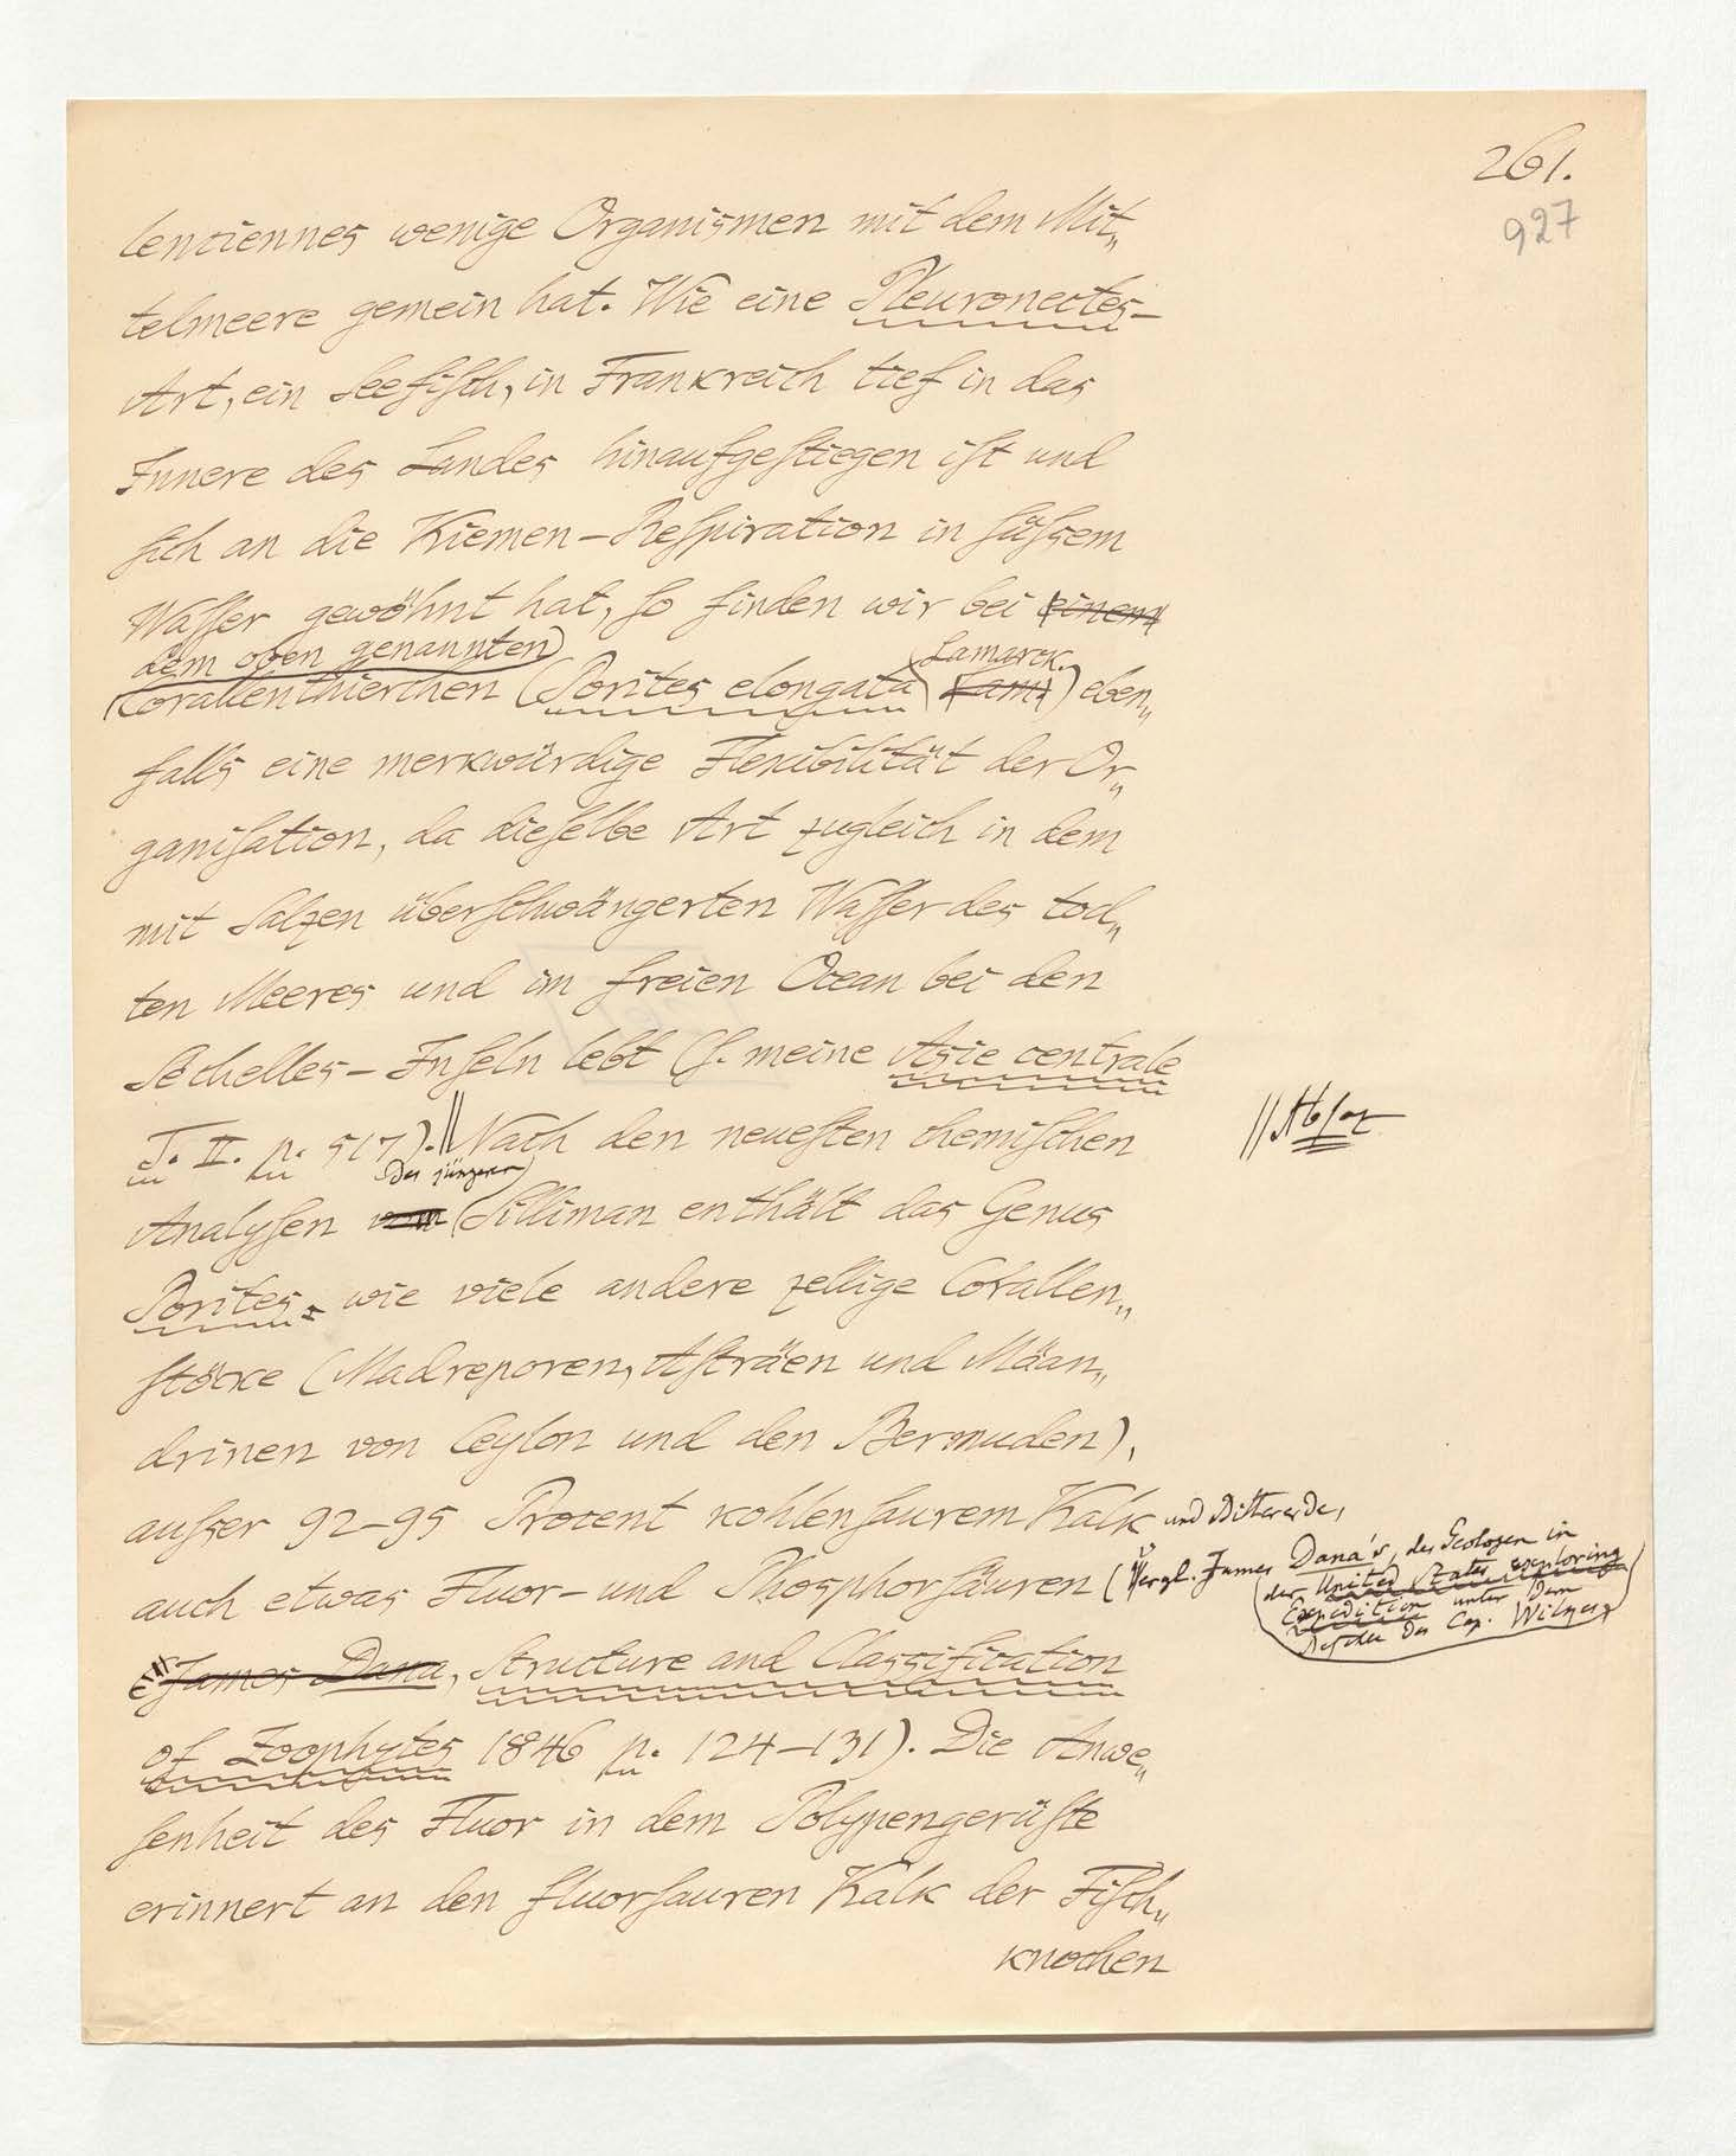 261.
927
lenciennes wenige Organismen mit dem Mit„
telmeere gemein hat. Wie eine Pleuronectes-
Art, ein Seefiſch, in Frankreich tief in das
Innere des Landes hinaufgeſtiegen iſt und
ſich an die Kiemen-Reſpiration in ſüſsem
Waſſer gewöhnt hat, ſo finden wir bei einem
dem oben genannten Lamarck.
Corallenthierchen (Porites elongata Lam.) eben„
falls eine merkwürdige Flexibilität der Or„
ganiſation, da dieſelbe Art zugleich in dem
mit Salzen überſchwängerten Waſſer des tod„
ten Meeres und im freien Ocean bei den
Sechelles-Inſeln lebt (ſ. meine Asie centrale
T. II. p. 517). || Nach den neueſten chemiſchen
|| Abſatz
des jüngeren
Analyſen vom Silliman enthält das Genus
Porites, wie viele andere zellige Corallen„
ſtöcke (Madreporen, Aſträen und Mäan„
drinen von Ceylon und den Bermuden),
auſser 92-95 Procent kohlenſaurem Kalk und Bittererde,
auch etwas Fluor- und Phosphorſäuren (Vergl. James Dana's, des Geologen in
der United States exploring
Expedition unter dem
Befehle des Cap. Wilkes
James Dana, Structure and Classification
of Zoophytes 1846 p. 124-131). Die Anwe„
ſenheit des Fluor in dem Polypengerüſte
erinnert an den fluorſauren Kalk der Fiſch„
knochen